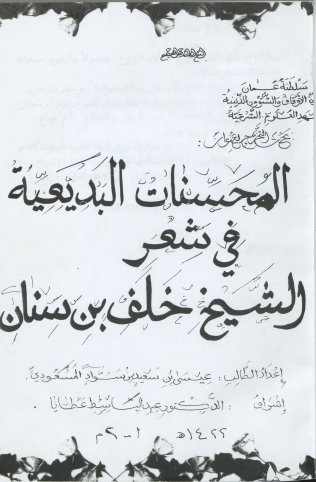 سلطنة عمان
الأوقاف والشؤون الدينية
معهد العلوم الشرعية
بحث التخرج بعنوان:
المحسنات البديعية
في شعر
الشيخ خلف بن سنان
إعداد الطالب: عيسى بن سعيد بن المسعودي
إشراف: الدكتور عبد الباسط عطايا
١٤٢٢هـ ٢٠٠١م